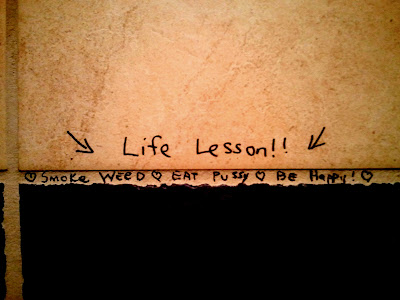 Life Lesson!!
♡ Smoke WEED ♡ EAT Pussy ♡ BE Happy! ♡